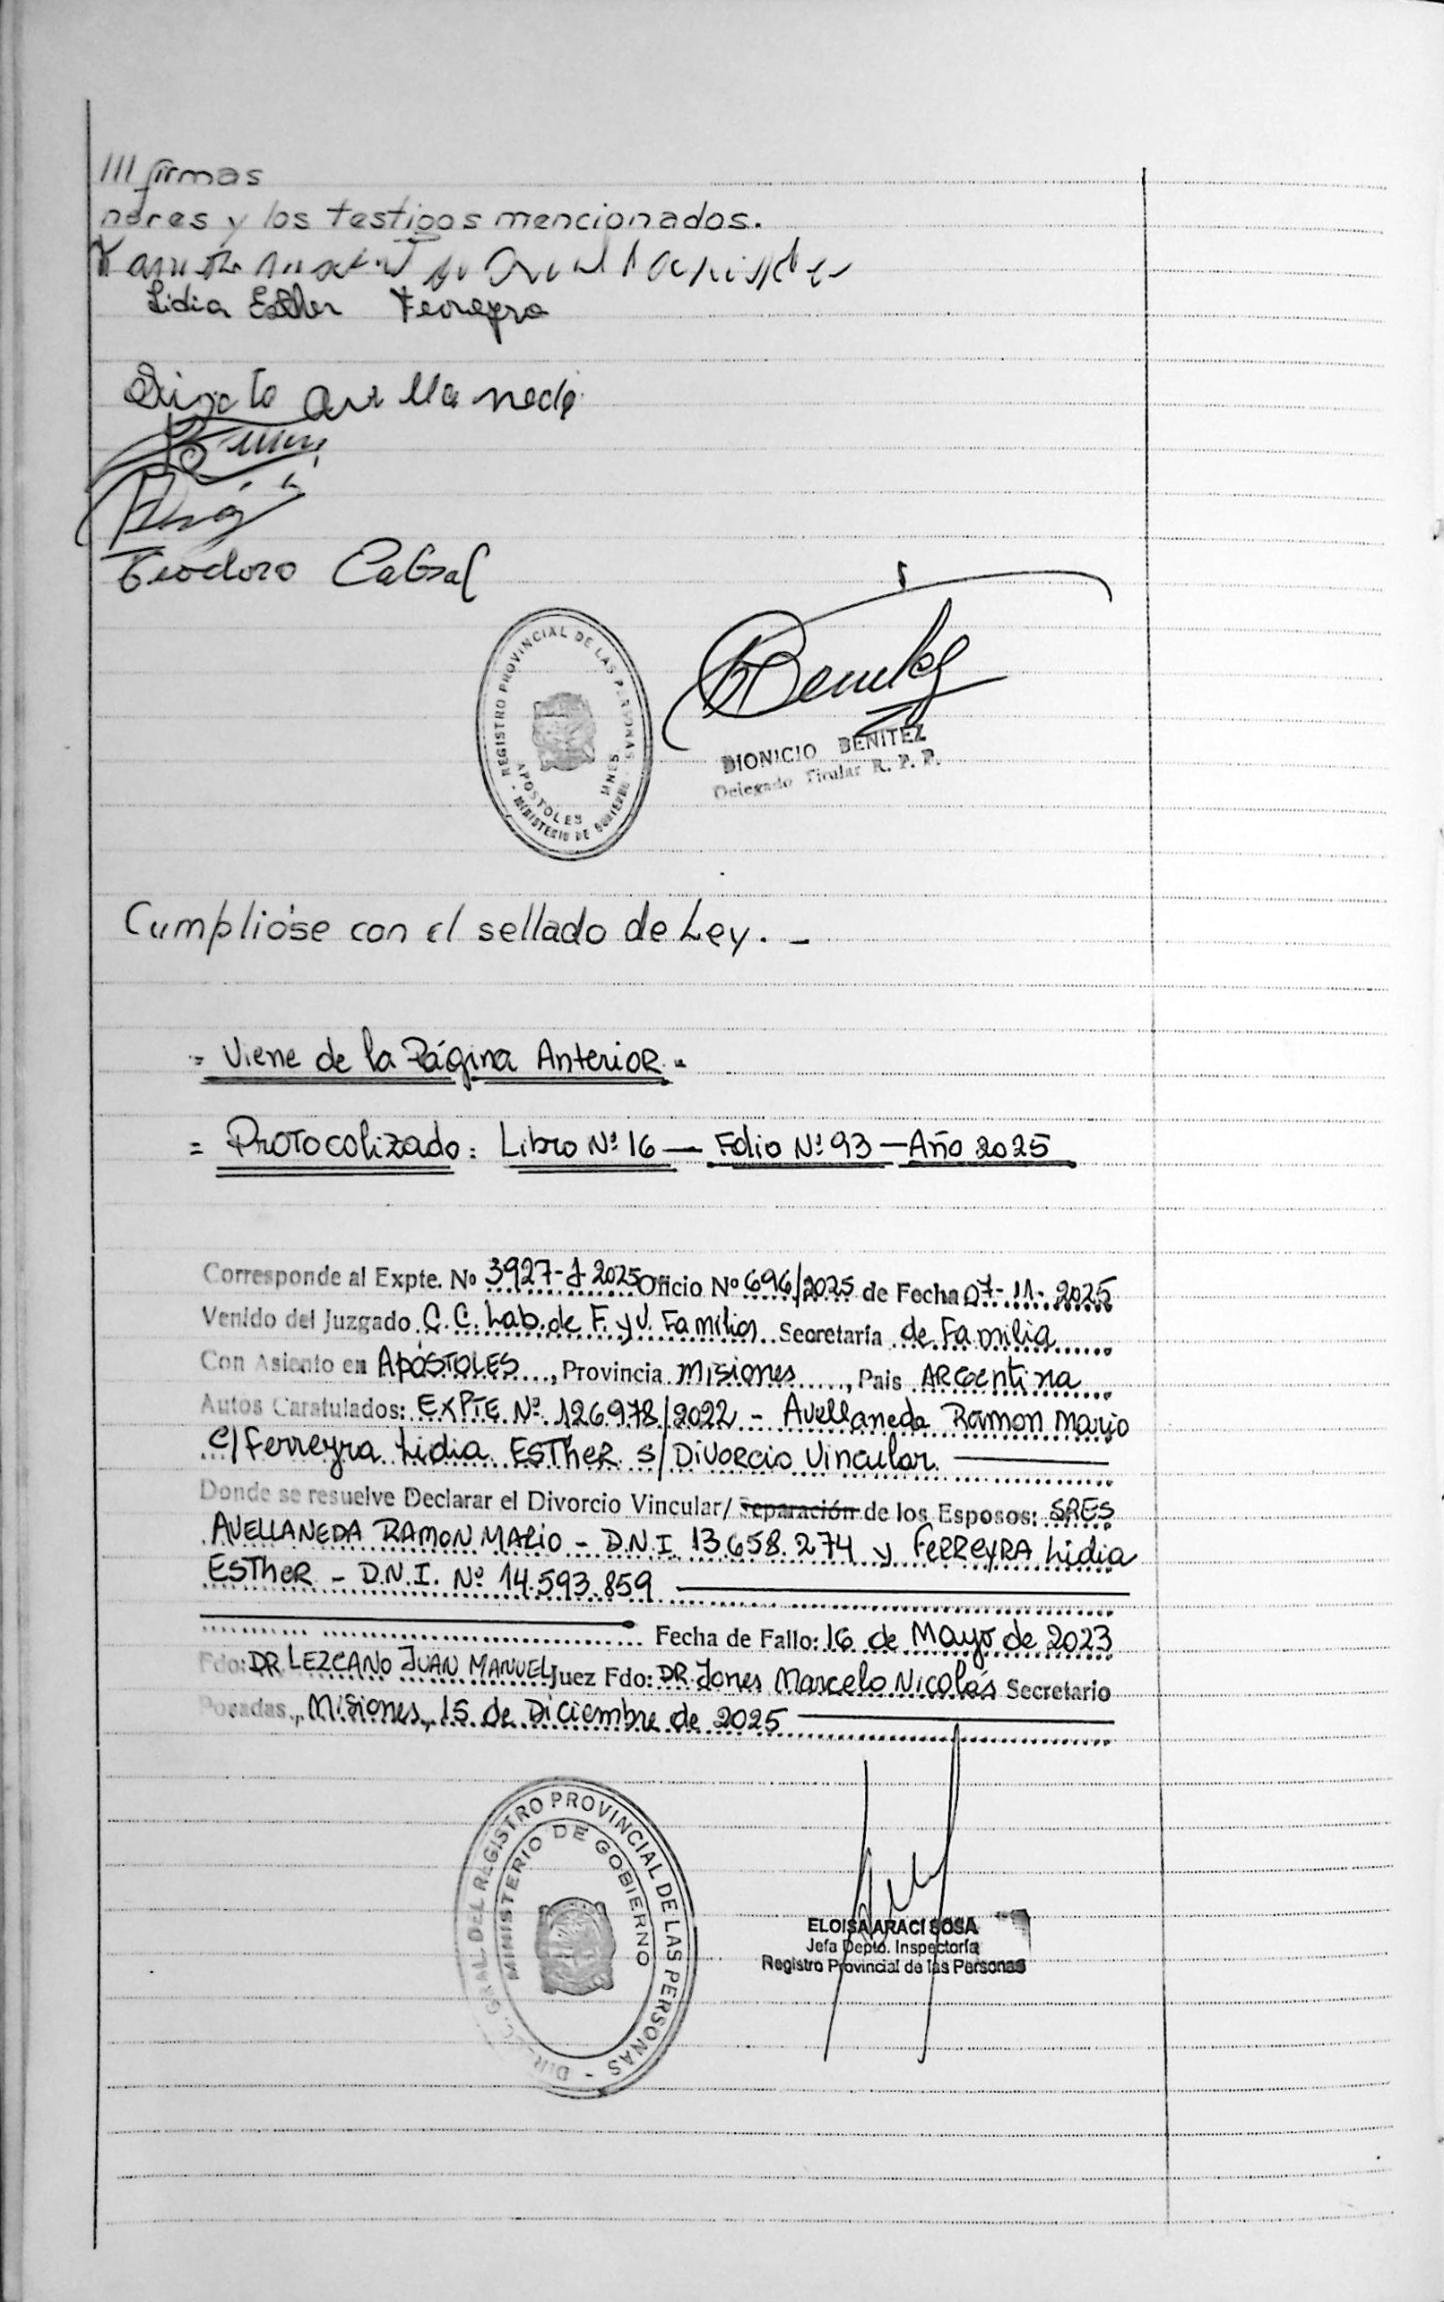 /// firmas
nores y los testigos mencionados.
Lidia Esther Ferreyra
Avellaneda
Teodoro Cabral
REGISTRO PROVINCIAL DE LAS PERSONAS
APOSTOLES MNES
- MINISTERIO DE GOBIERNO -
Benitez
DIONICIO BENITEZ
Delegado Titular R. P. P.
Cumplióse con el sellado de Ley. -
= Viene de la Página Anterior =
= Protocolizado: Libro Nº 16 — Folio Nº 93 — Año 2025
Corresponde al Expte. Nº 3927-J-2025 Oficio Nº 696/2025 de Fecha 07-11-2025
Venido del Juzgado C.C. Lab. de F. y V. Familiar Secretaría de Familia
Con Asiento en APÓSTOLES, Provincia Misiones, Pais ARGentina
Autos Caratulados: EXPTE. Nº 126.978/2022 - Avellaneda Ramon Mario
C/ Ferreyra Lidia ESTheR s/ Divorcio Vincular.
Donde se resuelve Declarar el Divorcio Vincular/ Separación de los Esposos: SRES
AVELLANEDA RAMON MARIO - D.N.I. 13.658.274 y FeRReyRA Lidia
ESTheR - D.N.I. Nº 14.593.859
Fecha de Fallo: 16 de Mayo de 2023
Fdo: DR. LEZCANO JUAN MANUEL Juez Fdo: DR. Jones Marcelo Nicolás Secretario
Posadas, Misiones, 15 de Diciembre de 2025
DIREC. GRAL. DEL REGISTRO PROVINCIAL DE LAS PERSONAS -
MINISTERIO DE GOBIERNO
ELOISA ARACI SOSA
Jefa Depto. Inspectoría
Registro Provincial de las Personas